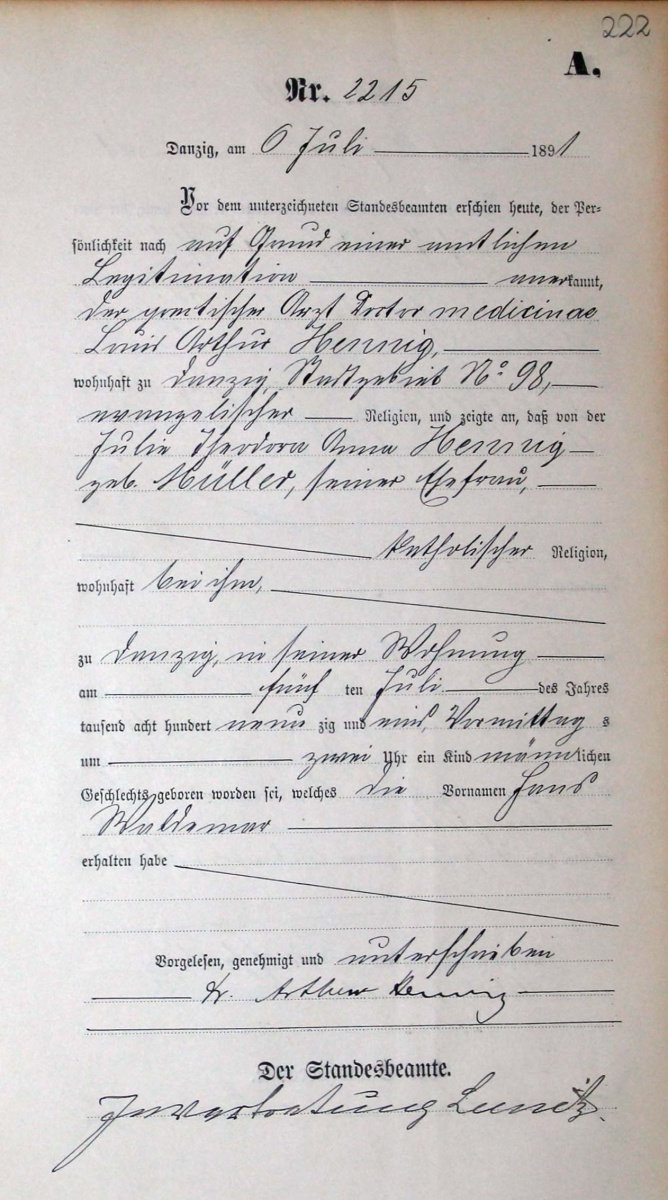 222
A.
Nr. 2215
Danzig, am 6 Juli 1891
Vor dem unterzeichneten Standesbeamten erschien heute, der Per-
sönlichkeit nach auf Grund einer amtlichen
Legitimation anerkannt,
der practischer Arzt Doctor medicinae
Louis Arthur Hennig,
wohnhaft zu Danzig, Stadtgebiet No 98,
evangelischer Religion, und zeigte an, daß von der
Julie Theodora Anna Hennig
geb. Müller, seiner Ehefrau,
katholischer Religion,
wohnhaft bei ihm,
zu Danzig, in seiner Wohnung
am fünf ten Juli des Jahres
tausend acht hundert neun zig und eins, Vormittag s
um zwei Uhr ein Kind männlichen
Geschlechts geboren worden sei, welches die Vornamen Hans
Waldemar
erhalten habe
Vorgelesen, genehmigt und unterschrieben
Dr. Arthur Hennig
Der Standesbeamte.
In Vertretung